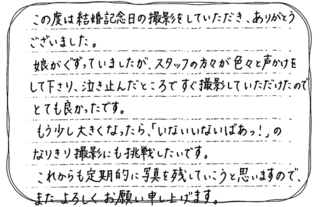 この度は結婚記念日の撮影をしていただき、ありがとう
ございました。
娘がぐずっていましたが、スタッフの方々が色々と声かけを
して下さり、泣き止んだところですぐ撮影していただけたので
とても良かったです。
もう少し大きくなったら、「いないいないばあっ!」の
なりきり撮影にも挑戦したいです。
これからも定期的に写真を残していこうと思いますので、
またよろしくお願い申し上げます。